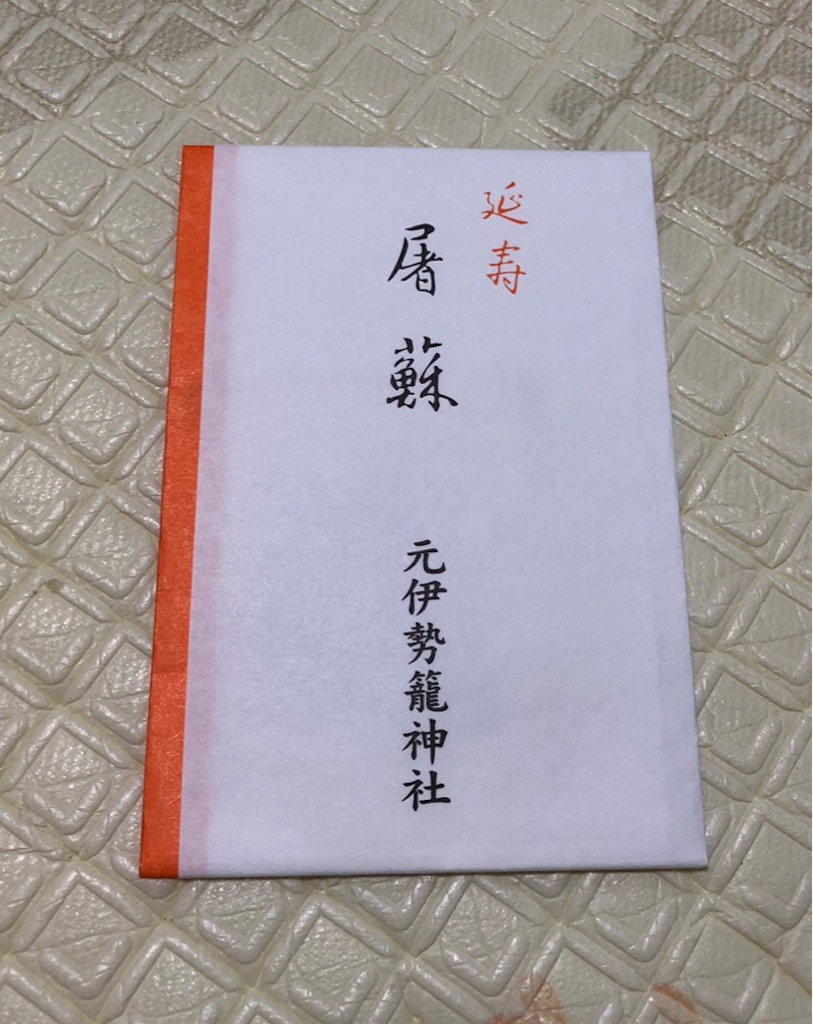 延寿
屠蘇
元伊勢籠神社